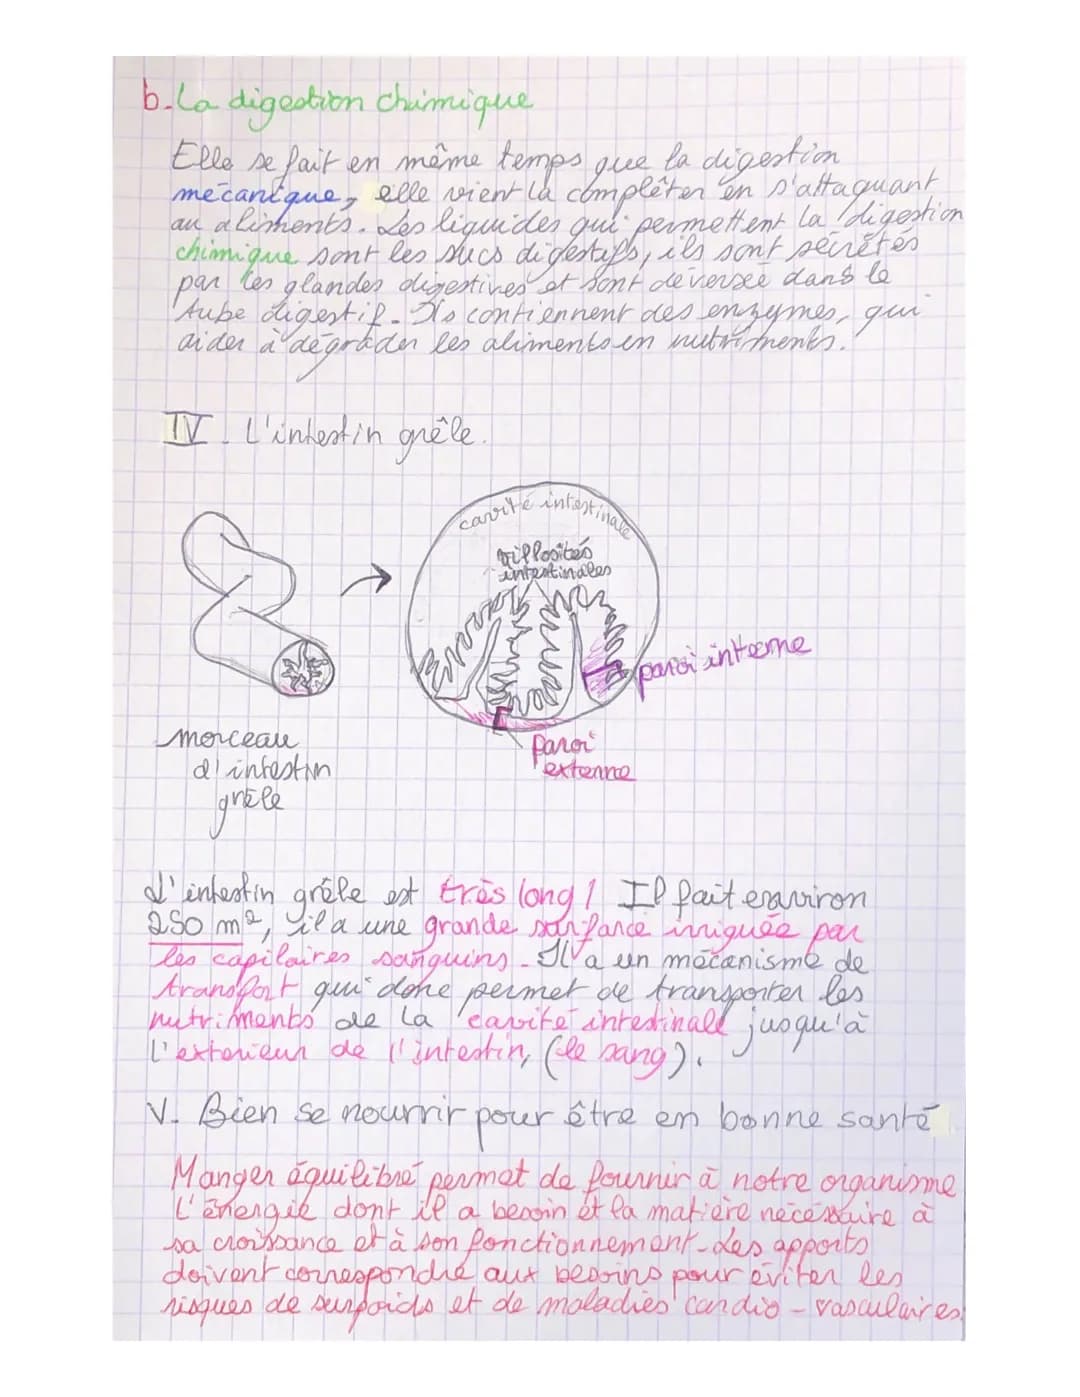 b. La digestion chimique
Elle se fait en même temps que la digestion
mécanique, elle vient la complêter en s'attaquant
au aliments. Les liquides qui permettent la digestion
chimique sont les sucs digestifs, ils sont sécrétés
par les glandes digestives et sont déversée dans le
tube digestif. Ils contiennent des enzymes, qui
aider à dégrader les aliments en nutriments.
IV. L'intestin grêle.
cavité intestinale
villosités
intestinales
paroi interne
morceau
d'intestin
grêle
paroi
externe
L'intestin grêle est très long! Il fait environ
250 m², il a une grande surface irriguée par
les capilaires sanguins. Il a un mécanisme de
transport qui donc permet de transporter les
nutriments de la cavité intestinale jusqu'à
l'exterieur de l'intestin, (le sang).
V. Bien se nourrir pour être en bonne santé
Manger équilibré permet de fournir à notre organisme
l'énergie dont il a besoin et la matière nécéssaire à
sa croissance et à son fonctionnement. Les apports
doivent correspondre aux besoins pour éviter les
risques de surpoids et de maladies cardio-vasculaires.